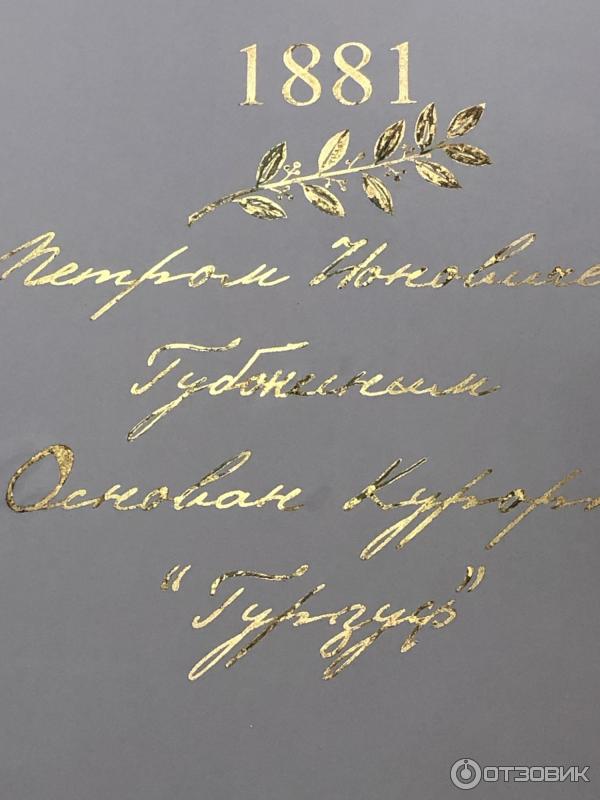 1881
Петром Ионовиче
Губониным
Основан Курорт
"Гурзуф"
ОТЗОВИК